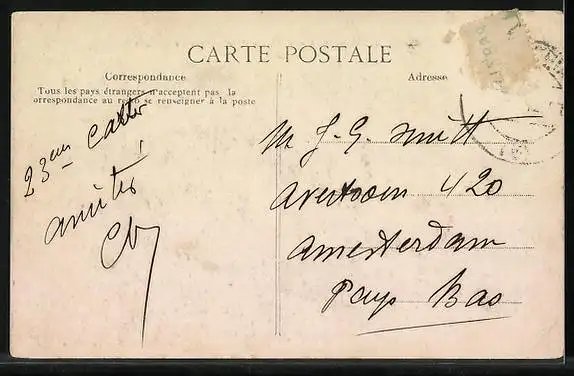 CARTE POSTALE
Correspondance
Tous les pays étrangers n'acceptent pas la
correspondance au recto se renseigner à la poste
23em
amitiés
Adresse
M J. G. Smitt
420
Amesterdam
Pays Bas